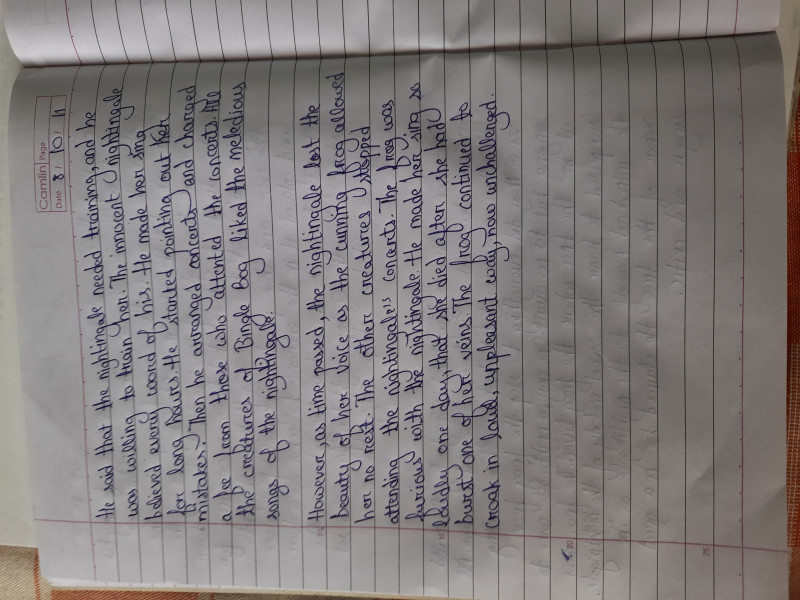 Camlin Page
Date 8 / 10 / 11
He said that the nightingale needed training, and he
was willing to train her. The innocent nightingale
believed every word of his. He made her sing
for long hours. He started pointing out her
mistakes. Then he arranged concerts and charged
a fee from those who attented the concerts. All
the creatures of Bingle Bog liked the meledious
songs of the nightingale.
However, as time passed, the nightingale lost the
beauty of her voice as the cunning frog allowed
her no rest. The other creatures stopped
attending the nightingale's concerts. The frog was
furious with the nightingale. He made her sing so
loudly one day, that she died after she had
burst one of her veins. The frog continued to
croak in loud, unpleasant way, now unchallenged.
20
25